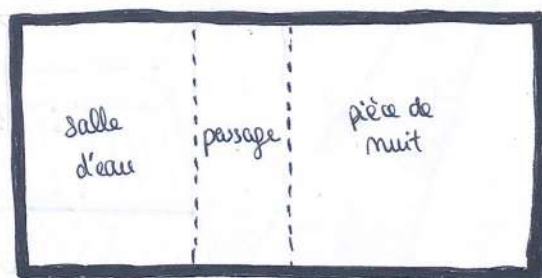 salle
d'eau
passage
pièce de
nuit